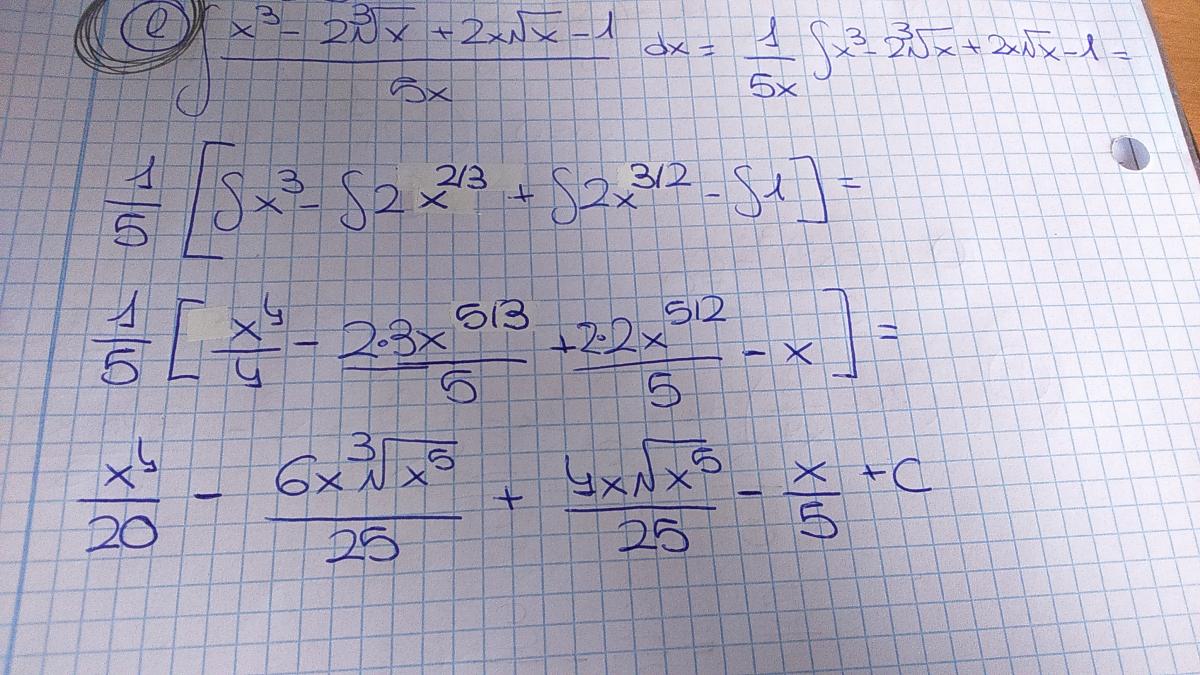 e) ∫ (x³ - 2∛x + 2x√x - 1)/(5x) dx = 1/(5x) ∫x³ - 2∛x + 2x√x - 1 =
1/5 [∫x³ - ∫2x^(2/3) + ∫2x^(3/2) - ∫1] =
1/5 [x⁴/4 - (2·3x^(5/3))/5 + (2·2x^(5/2))/5 - x] =
x⁴/20 - (6x∛x⁵)/25 + (4x√x⁵)/25 - x/5 + C